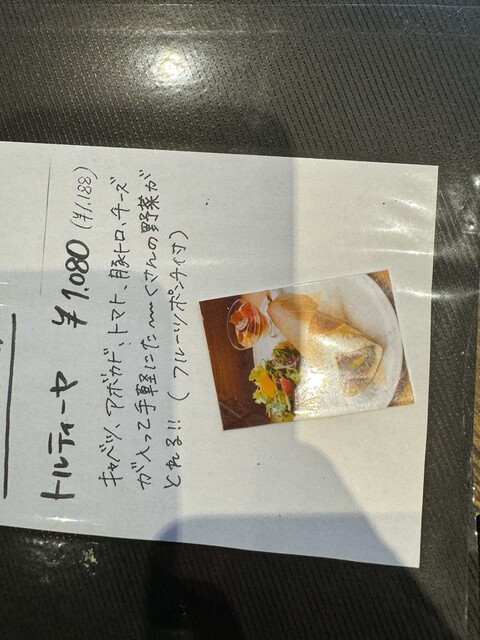 トルティーヤ ¥1,080 (¥1,188)
キャベツ、アボカド、トマト、豚トロ、チーズ
が入って手軽にた〜くさんの野菜が
とれる!! (フルーツポンチ付)